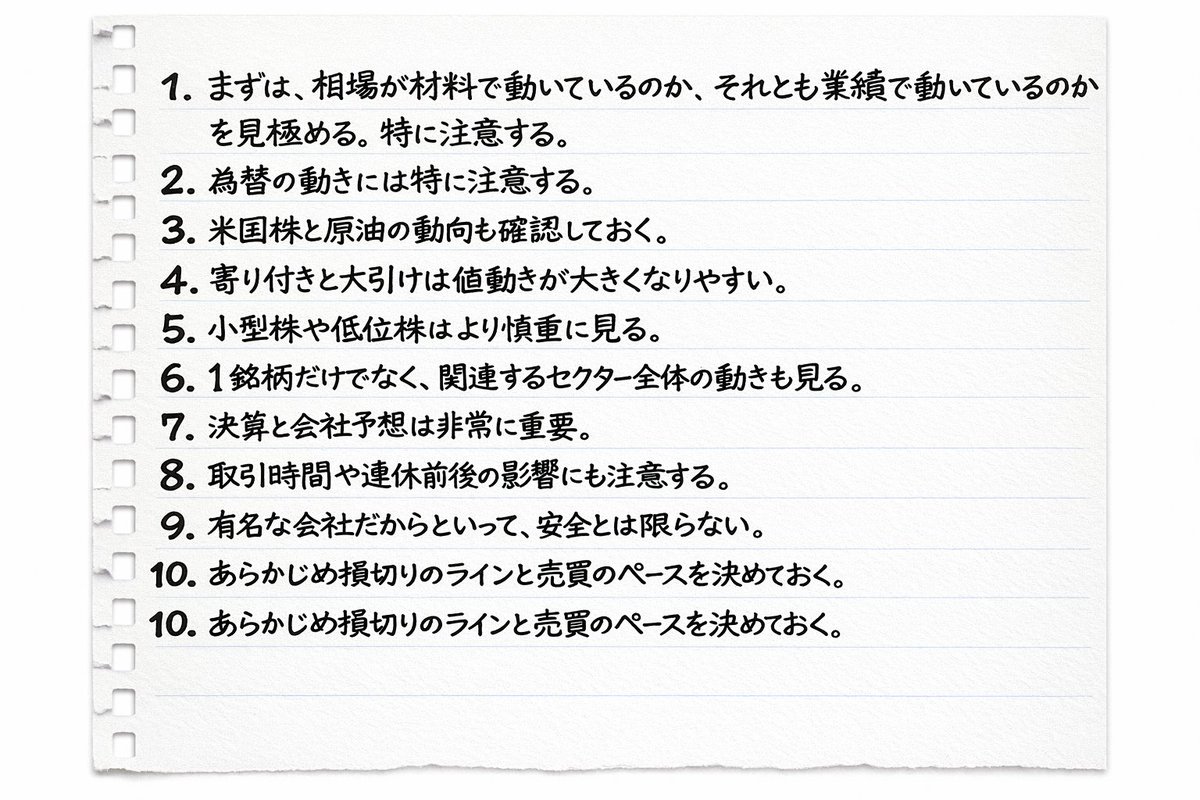 1. まずは、相場が材料で動いているのか、それとも業績で動いているのか
を見極める。特に注意する。
2. 為替の動きには特に注意する。
3. 米国株と原油の動向も確認しておく。
4. 寄り付きと大引けは値動きが大きくなりやすい。
5. 小型株や低位株はより慎重に見る。
6. 1銘柄だけでなく、関連するセクター全体の動きも見る。
7. 決算と会社予想は非常に重要。
8. 取引時間や連休前後の影響にも注意する。
9. 有名な会社だからといって、安全とは限らない。
10. あらかじめ損切りのラインと売買のペースを決めておく。
10. あらかじめ損切りのラインと売買のペースを決めておく。